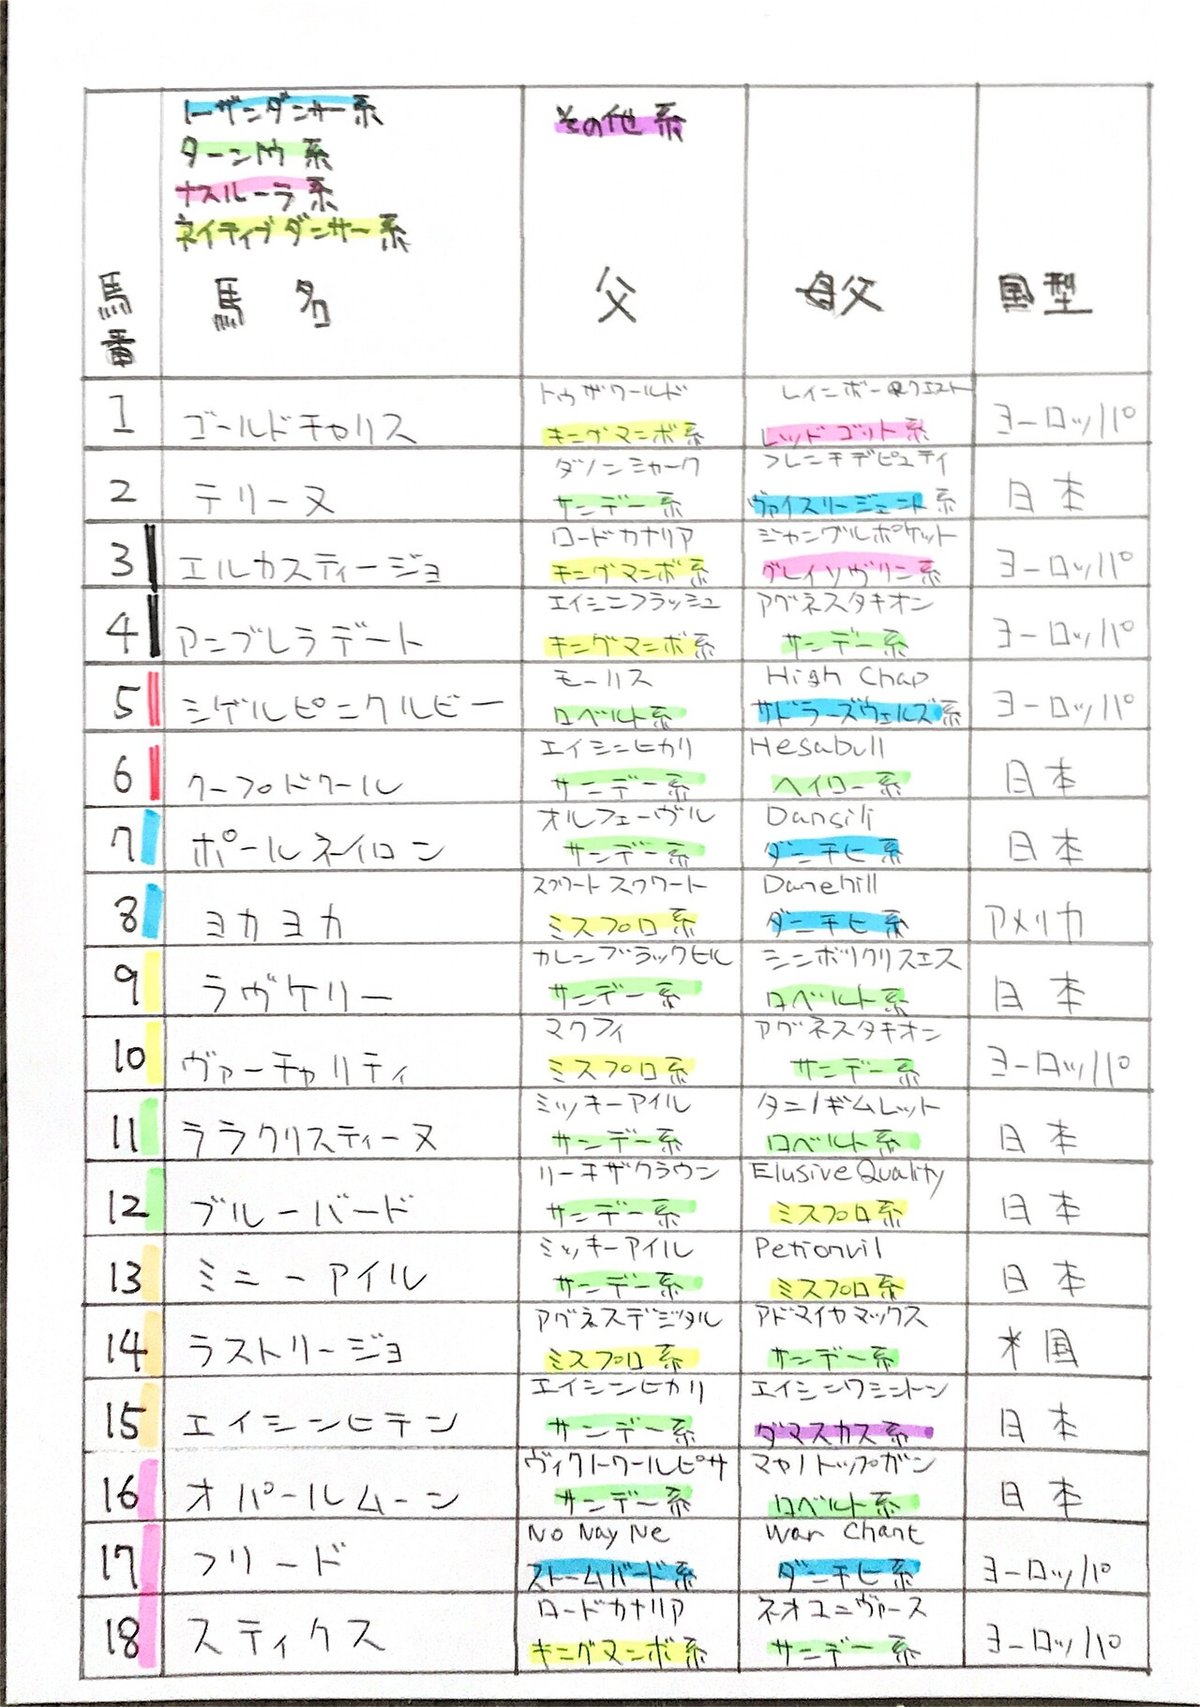 ノーザンダンサー系
ターントゥ系
ナスルーラ系
ネイティブダンサー系
その他系
馬番 馬名 父 母父 国型
1 ゴールドチャリス トゥザワールド レインボークエスト ヨーロッパ
キングマンボ系 レッドゴット系
2 テリーヌ ダノンシャーク フレンチデピュティ 日本
サンデー系 ヴァイスリージェント系
3 エルカスティージョ ロードカナロア ジャングルポケット ヨーロッパ
キングマンボ系 グレイソヴリン系
4 アンブレラデート エイシンフラッシュ アグネスタキオン ヨーロッパ
キングマンボ系 サンデー系
5 シゲルピンクルビー モーリス High Chap ヨーロッパ
ロベルト系 サドラーズウェルズ系
6 クープドクール エイシンヒカリ Hesabull 日本
サンデー系 ヘイロー系
7 ポールネイロン オルフェーヴル Dansili 日本
サンデー系 ダンチヒ系
8 ヨカヨカ スクワートルスクワート Danehill アメリカ
ミスプロ系 ダンチヒ系
9 ラヴケリー カレンブラックヒル シンボリクリスエス 日本
サンデー系 ロベルト系
10 ヴァーチャリティ マクフィ アグネスタキオン ヨーロッパ
ミスプロ系 サンデー系
11 ララクリスティーヌ ミッキーアイル タニノギムレット 日本
サンデー系 ロベルト系
12 ブルーバード リーチザクラウン Elusive Quality 日本
サンデー系 ミスプロ系
13 ミニーアイル ミッキーアイル Petionvil 日本
サンデー系 ミスプロ系
14 ラストリージョ アグネスデジタル アドマイヤマックス 米国
ミスプロ系 サンデー系
15 エイシンヒテン エイシンヒカリ エイシンワシントン 日本
サンデー系 ダマスカス系
16 オパールムーン ヴィクトワールピサ マヤノトップガン 日本
サンデー系 ロベルト系
17 フリード No Nay Ne War Chant ヨーロッパ
ストームバード系 ダンチヒ系
18 スティクス ロードカナロア ネオユニヴァース ヨーロッパ
キングマンボ系 サンデー系